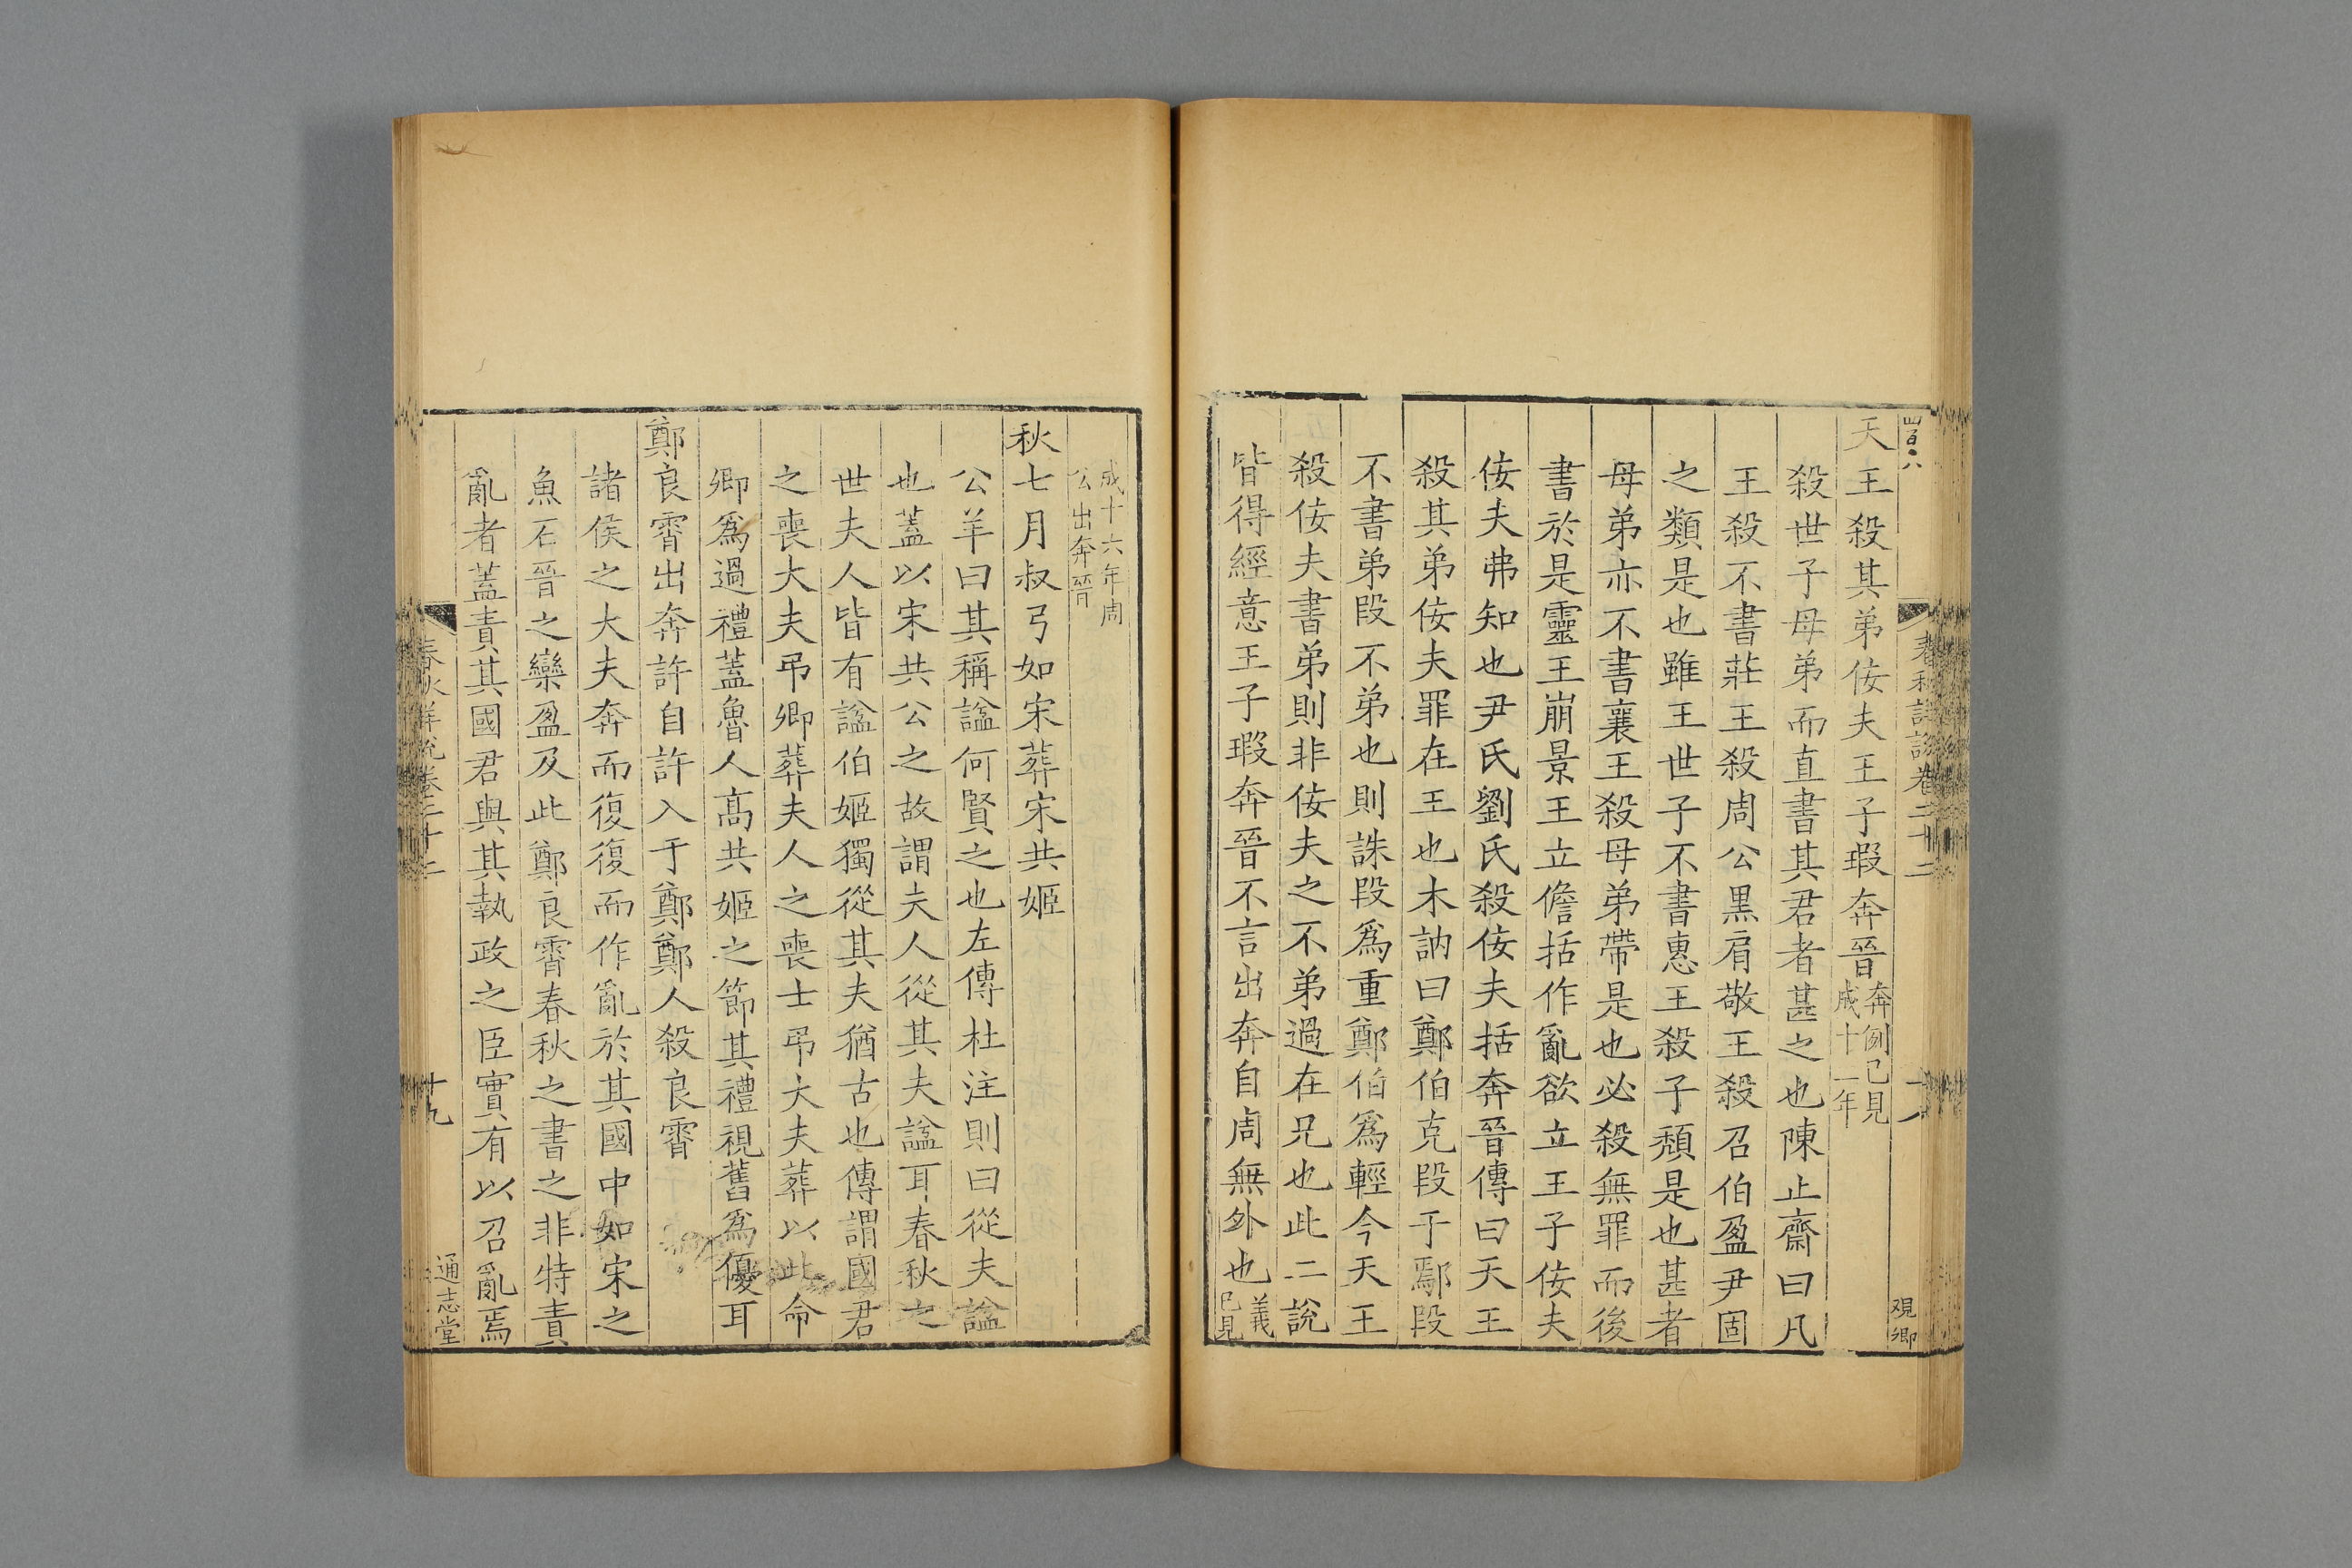 四百六
春秋詳說卷二十二
十八
觀卿
天王殺其弟佞夫王子瑕奔晉奔例已見成十一年
殺世子母弟而直書其君者甚之也陳止齋曰凡
王殺不書莊王殺周公黑肩敬王殺召伯盈尹固
之類是也雖王世子不書惠王殺子頹是也甚者
母弟亦不書襄王殺母弟帶是也必殺無罪而後
書於是靈王崩景王立儋括作亂欲立王子佞夫
佞夫弗知也尹氏劉氏殺佞夫括奔晉傳曰天王
殺其弟佞夫罪在王也木訥曰鄭伯克段于鄢段
不書弟段不弟也則誅段爲重鄭伯爲輕今天王
殺佞夫書弟則非佞夫之不弟過在兄也此二說
皆得經意王子瑕奔晉不言出奔自周無外也義已見
成十六年周公出奔晉
秋七月叔弓如宋葬宋共姬
公羊曰其稱謚何賢之也左傳杜注則曰從夫謚
也蓋以宋共公之故謂夫人從其夫謚耳春秋之
世夫人皆有謚伯姬獨從其夫猶古也傳謂國君
之喪大夫弔卿葬夫人之喪士弔大夫葬以此命
卿爲過禮蓋魯人高共姬之節其禮視舊爲優耳
鄭良霄出奔許自許入于鄭鄭人殺良霄
諸侯之大夫奔而復復而作亂於其國中如宋之
魚石晉之欒盈及此鄭良霄春秋之書之非特責
亂者蓋責其國君與其執政之臣實有以召亂焉
春秋詳說卷二十二
十九
通志堂